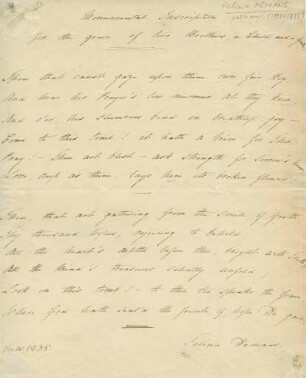 Felicia HEMANS
Monumental Inscription
for the grave of two Brothers, a Child and a Youth
Thou that canst gaze upon thine own fair Boy
And hear his Prayer's low murmur at thy knee
And o'er his slumbers bend in breathless joy—
Come to this tomb! it hath a voice for Thee!
Pray!— Thou art blest— ask strength for Sorrow's hour
Love, deep as thine, lays here its broken flower.
Thou, that art gathering from the smile of Youth
Thy thousand hopes, rejoicing to behold
All the heart's depths before thee bright with Truth
All the Mind's treasures silently unfold
Look on this tomb!— to thee too speaks the Grave
Where God hath seal'd the fount of hope He gave.
Felicia Hemans
1835